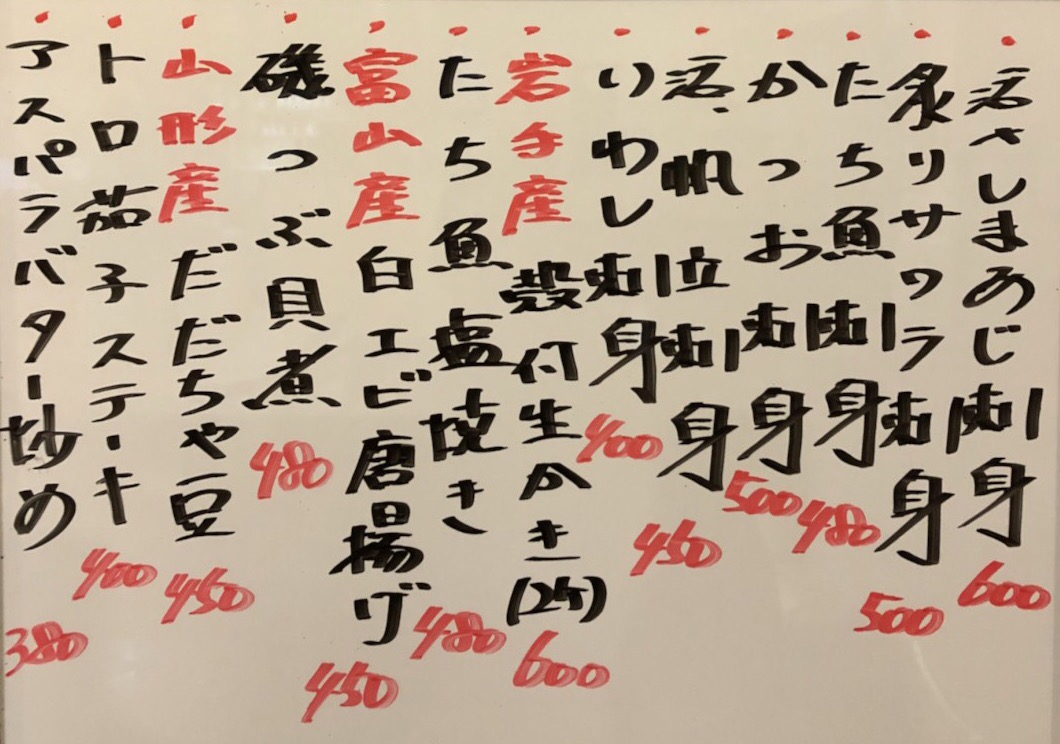 活さしまあじ刺身 600
炙りサワラ刺身 500
たち魚刺身 480
かつお刺身 500
活帆立刺身 450
いわし刺身 400
岩手産殻付生かき(2ケ) 600
たち魚塩焼き 480
富山産白エビ唐揚げ 450
磯つぶ貝煮 480
山形産だだちゃ豆 450
トロ茄子ステーキ 400
アスパラバター炒め 380